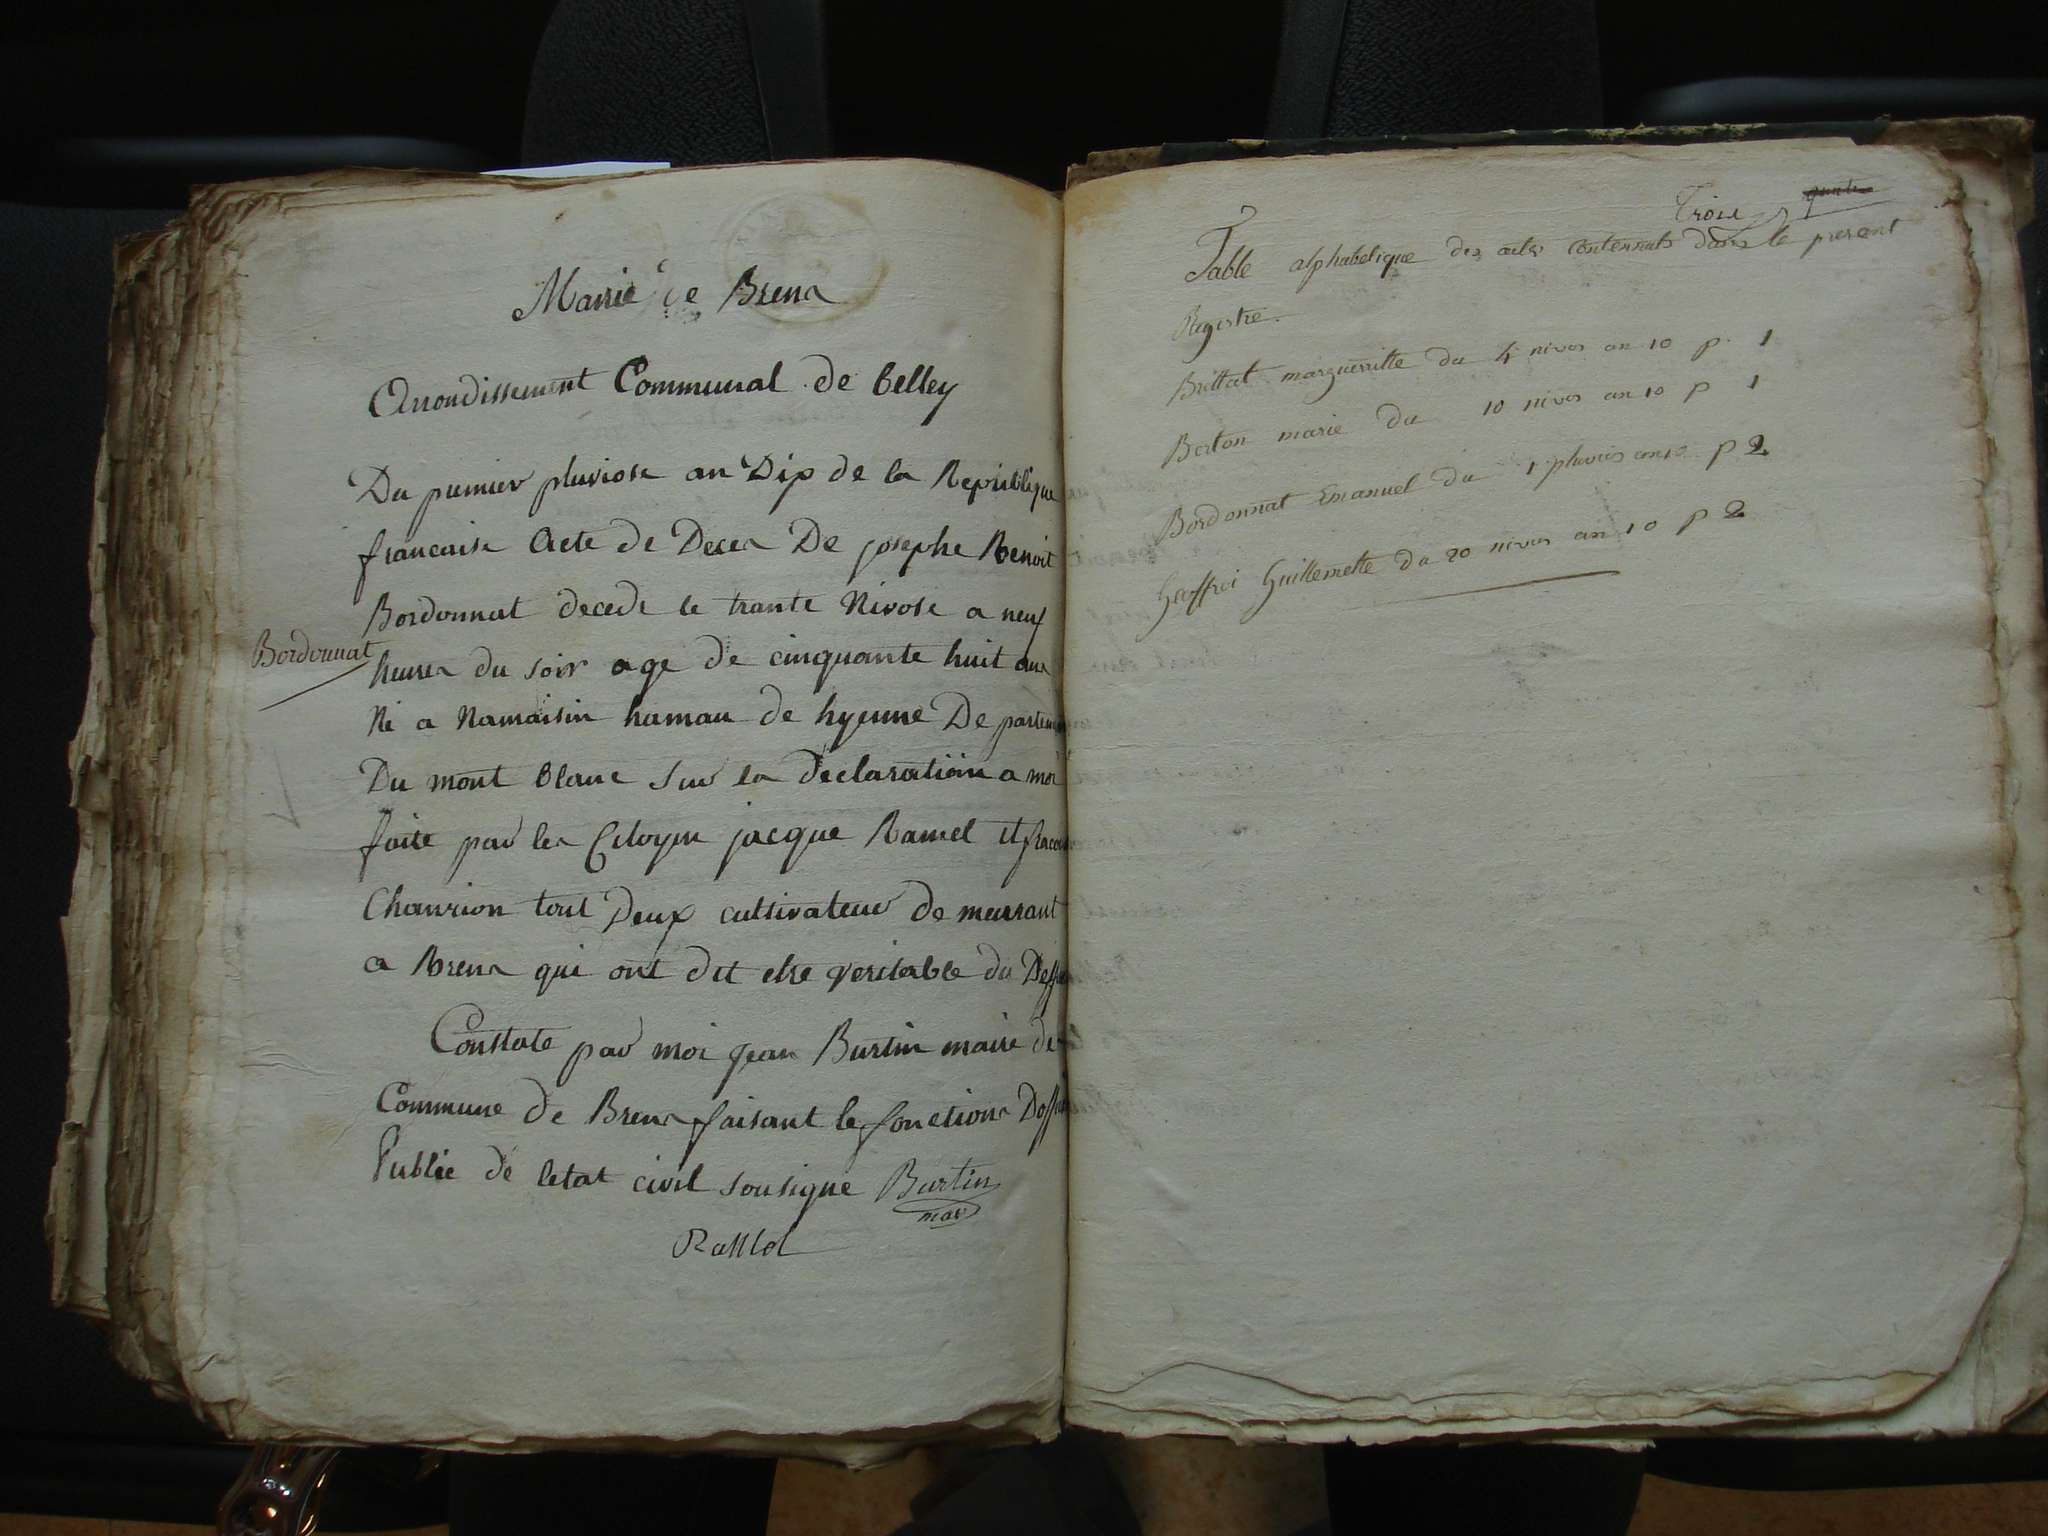 Mairie de Brens
Arrondissement Communal de belley
Du premier pluviose an Dix de la Republique
francaise Acte de Deces De josephe Benoit
Bordonnat decede le trante Nivose a neuf
Bordonnat
heures du soir age de cinquante huit ans
Né a Namaisin hamau de hyenne De partem
Du mont blanc sur la declaration a moi
faite par les Citoyen jacque Ramel et
Chanrion tout Deux cultivateur de meurant
a Brens qui ont dit etre veritable du
Constate par moi jean Burtin maire de
Commune de Brens faisant le fonctions
Public de letat civil sousigne Burtin
mar
Trois
Table alphabetique des actes contennats dans le present
Registre.
Brittat marguerritte du 4 nivos an 10 p. 1
Berton marie du 10 nivos an 10 p 1
Bordonnat Emanuel du 1 pluvios an 10 p 2
Geoffroi Guillemette du 20 nivos an 10 p 2